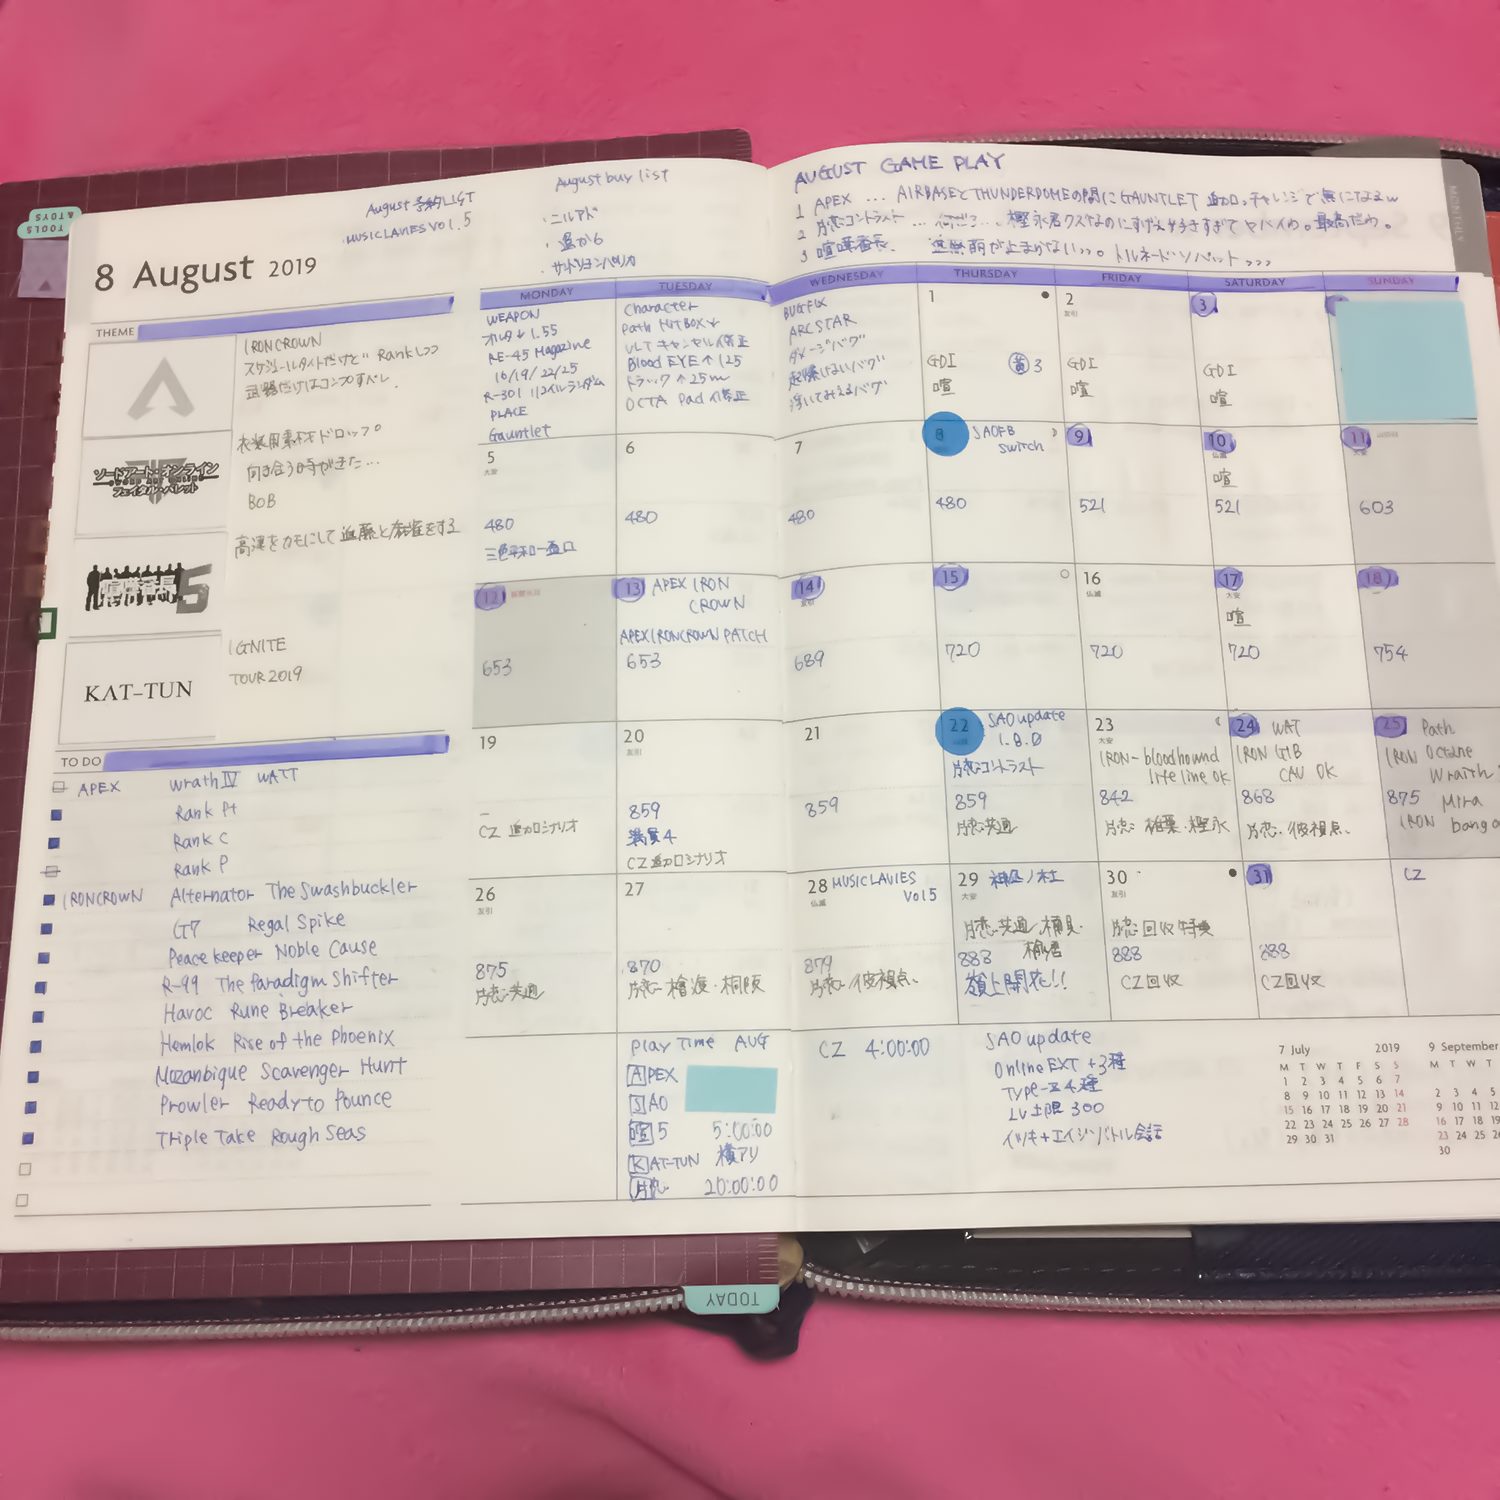 TOOLS
& TOYS
August 予約LIST
MUSICLAVIES VOL.5
August buy list
・ニルアド
・遙か6
AUGUST GAME PLAY
1 APEX ... AIRBASEとTHUNDERDOMEの間にGAUNTLET 追加。チャレンジで無になるw
2 片恋コントラスト
3 喧嘩番長
MONTHLY
8 August 2019
THEME
IRONCROWN
スケジュールタイトだけど Rank
武器だけはコンプすべし.
ソードアート・オンライン
フェイタル・バレット
衣装用素材ドロップ。
向き合う時がきた...
BOB
喧嘩番長5
高澤をカモにして近藤と麻雀をする
KAT-TUN
IGNITE
TOUR2019
TO DO
APEX wrath IV WATT
Rank Pt
Rank C
Rank P
IRONCROWN Alternator The Swashbuckler
G7 Regal Spike
Peacekeeper Noble Cause
R-99 The Paradigm Shifter
Havoc Rune Breaker
Hemlok Rise of the Phoenix
Mozanbique Scavenger Hunt
Prowler Ready to Pounce
Triple Take Rough Seas
MONDAY TUESDAY WEDNESDAY THURSDAY FRIDAY SATURDAY SUNDAY
WEAPON
オルタ↓1.55
RE-45 Magazine
16/19/22/25
R-301 リコイルランダム
PLACE
Gauntlet
Character
Path HITBOX↓
ULT キャンセル修正
Blood EYE↑125
トラック↑25m
OCTA Pad 修正
BUGFIX
ARCSTAR
ダメージバグ
起爆しないバグ
浮いてみえるバグ
1
GDI 黄3
喧
2
友引
GDI
喧
3
GDI
喧
5
大安
480
6
480
7
480
8 SAOFB
switch
480
9
521
10
仏滅
喧
521
11
603
12
653
13 APEX IRON
CROWN
APEX IRONCROWN PATCH
653
14
友引
689
15
720
16
仏滅
720
17
大安
喧
720
18
754
19
CZ 追加シナリオ
20
友引
859
満貫4
CZ 追加シナリオ
21
859
22 SAO update
1.8.0
片恋コントラスト
859
片恋共通
23
大安
IRON-bloodhound
life line OK
842
片恋 稚葉・樫永
24 WAT
IRON GIB
CAU OK
868
片恋・彼視点.
25 Path
IRON Octane
Wraith
875 Mira
IRON bango
26
友引
875
片恋共通
27
870
片恋 檜渡・桐阪
28 MUSICLAVIES
仏滅 Vol5
879
片恋・彼視点.
29
大安
片恋共通
888
嶺上開花!!
30
友引
片恋回収特典
888
CZ回収
31
888
CZ回収
CZ
Play Time AUG
APEX
SAO
喧5 5:00:00
KAT-TUN 横アリ
片恋 20:00:00
CZ 4:00:00
SAO update
Online EXT +3種
Type-X 4種
LV上限 300
イツキ+エイジ バトル会話
7 July 2019
M T W T F S S
1 2 3 4 5 6 7
8 9 10 11 12 13 14
15 16 17 18 19 20 21
22 23 24 25 26 27 28
29 30 31
9 September
M T W T
2 3 4 5
9 10 11 12
16 17 18 19
23 24 25 26
30
TODAY